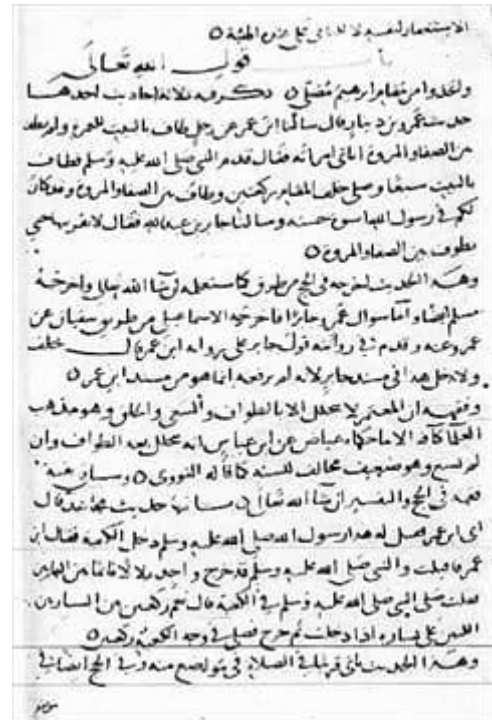 الاستغفار لنفسه لا للنبي قبل
باب قول الله تعالى
واتخذوا من مقام ابراهيم مصلى ذكر فيه ثلاثة احاديث احدها
حديث عمرو بن دينار قال سالنا ابن عمر عن رجل طاف بالبيت للعمرة ولم يطف
بين الصفا والمروة اياتي امراته فقال قدم النبي صلى الله عليه وسلم فطاف
بالبيت سبعا وصلى خلف المقام ركعتين وطاف بين الصفا والمروة وقد كان
لكم في رسول الله اسوة حسنة وسالنا جابر بن عبد الله فقال لا يقربنها حتى
يطوف بين الصفا والمروة
وهذا الحديث اخرجه في الحج من طرق كما ستعلمه ان شا الله تعالى واخرجه
مسلم ايضا واما سوال عمرو جابرا فاخرجه الاسماعيلي من طريق سفيان عن
عمرو عنه وقدم في روايته قول جابر على رواية ابن عمر قال خلف
ولا دخل هذا في مسند جابر لانه لم يرفعه انما هو من مسند ابن عمر
وفقهه ان المعتمر لا يتحلل الا بالطواف والسعي والحلق وهو مذهب
العلما كافة الا ما حكاه عياض عن ابن عباس انه يتحلل بعد الطواف وان
لم يسع وهو ضعيف مخالف للسنة كما قاله النووي وسياتي
فيه في الحج والتفسير ان شا الله تعالى ثانيها حديث مجاهد قال
اتى ابن عمر فقيل له هذا رسول الله صلى الله عليه وسلم دخل الكعبة فقال ابن
عمر فاقبلت والنبي صلى الله عليه وسلم قد خرج واجد بلالا قائما بين البابين
فقلت صلى النبي صلى الله عليه وسلم في الكعبة قال نعم ركعتين بين الساريتين
اللتين على يساره اذا دخلت ثم خرج فصلى في وجه الكعبة ركعتين
وهذا الحديث ياتي قريبا في الصلاة في مواضع منه وفي الحج ايضا في